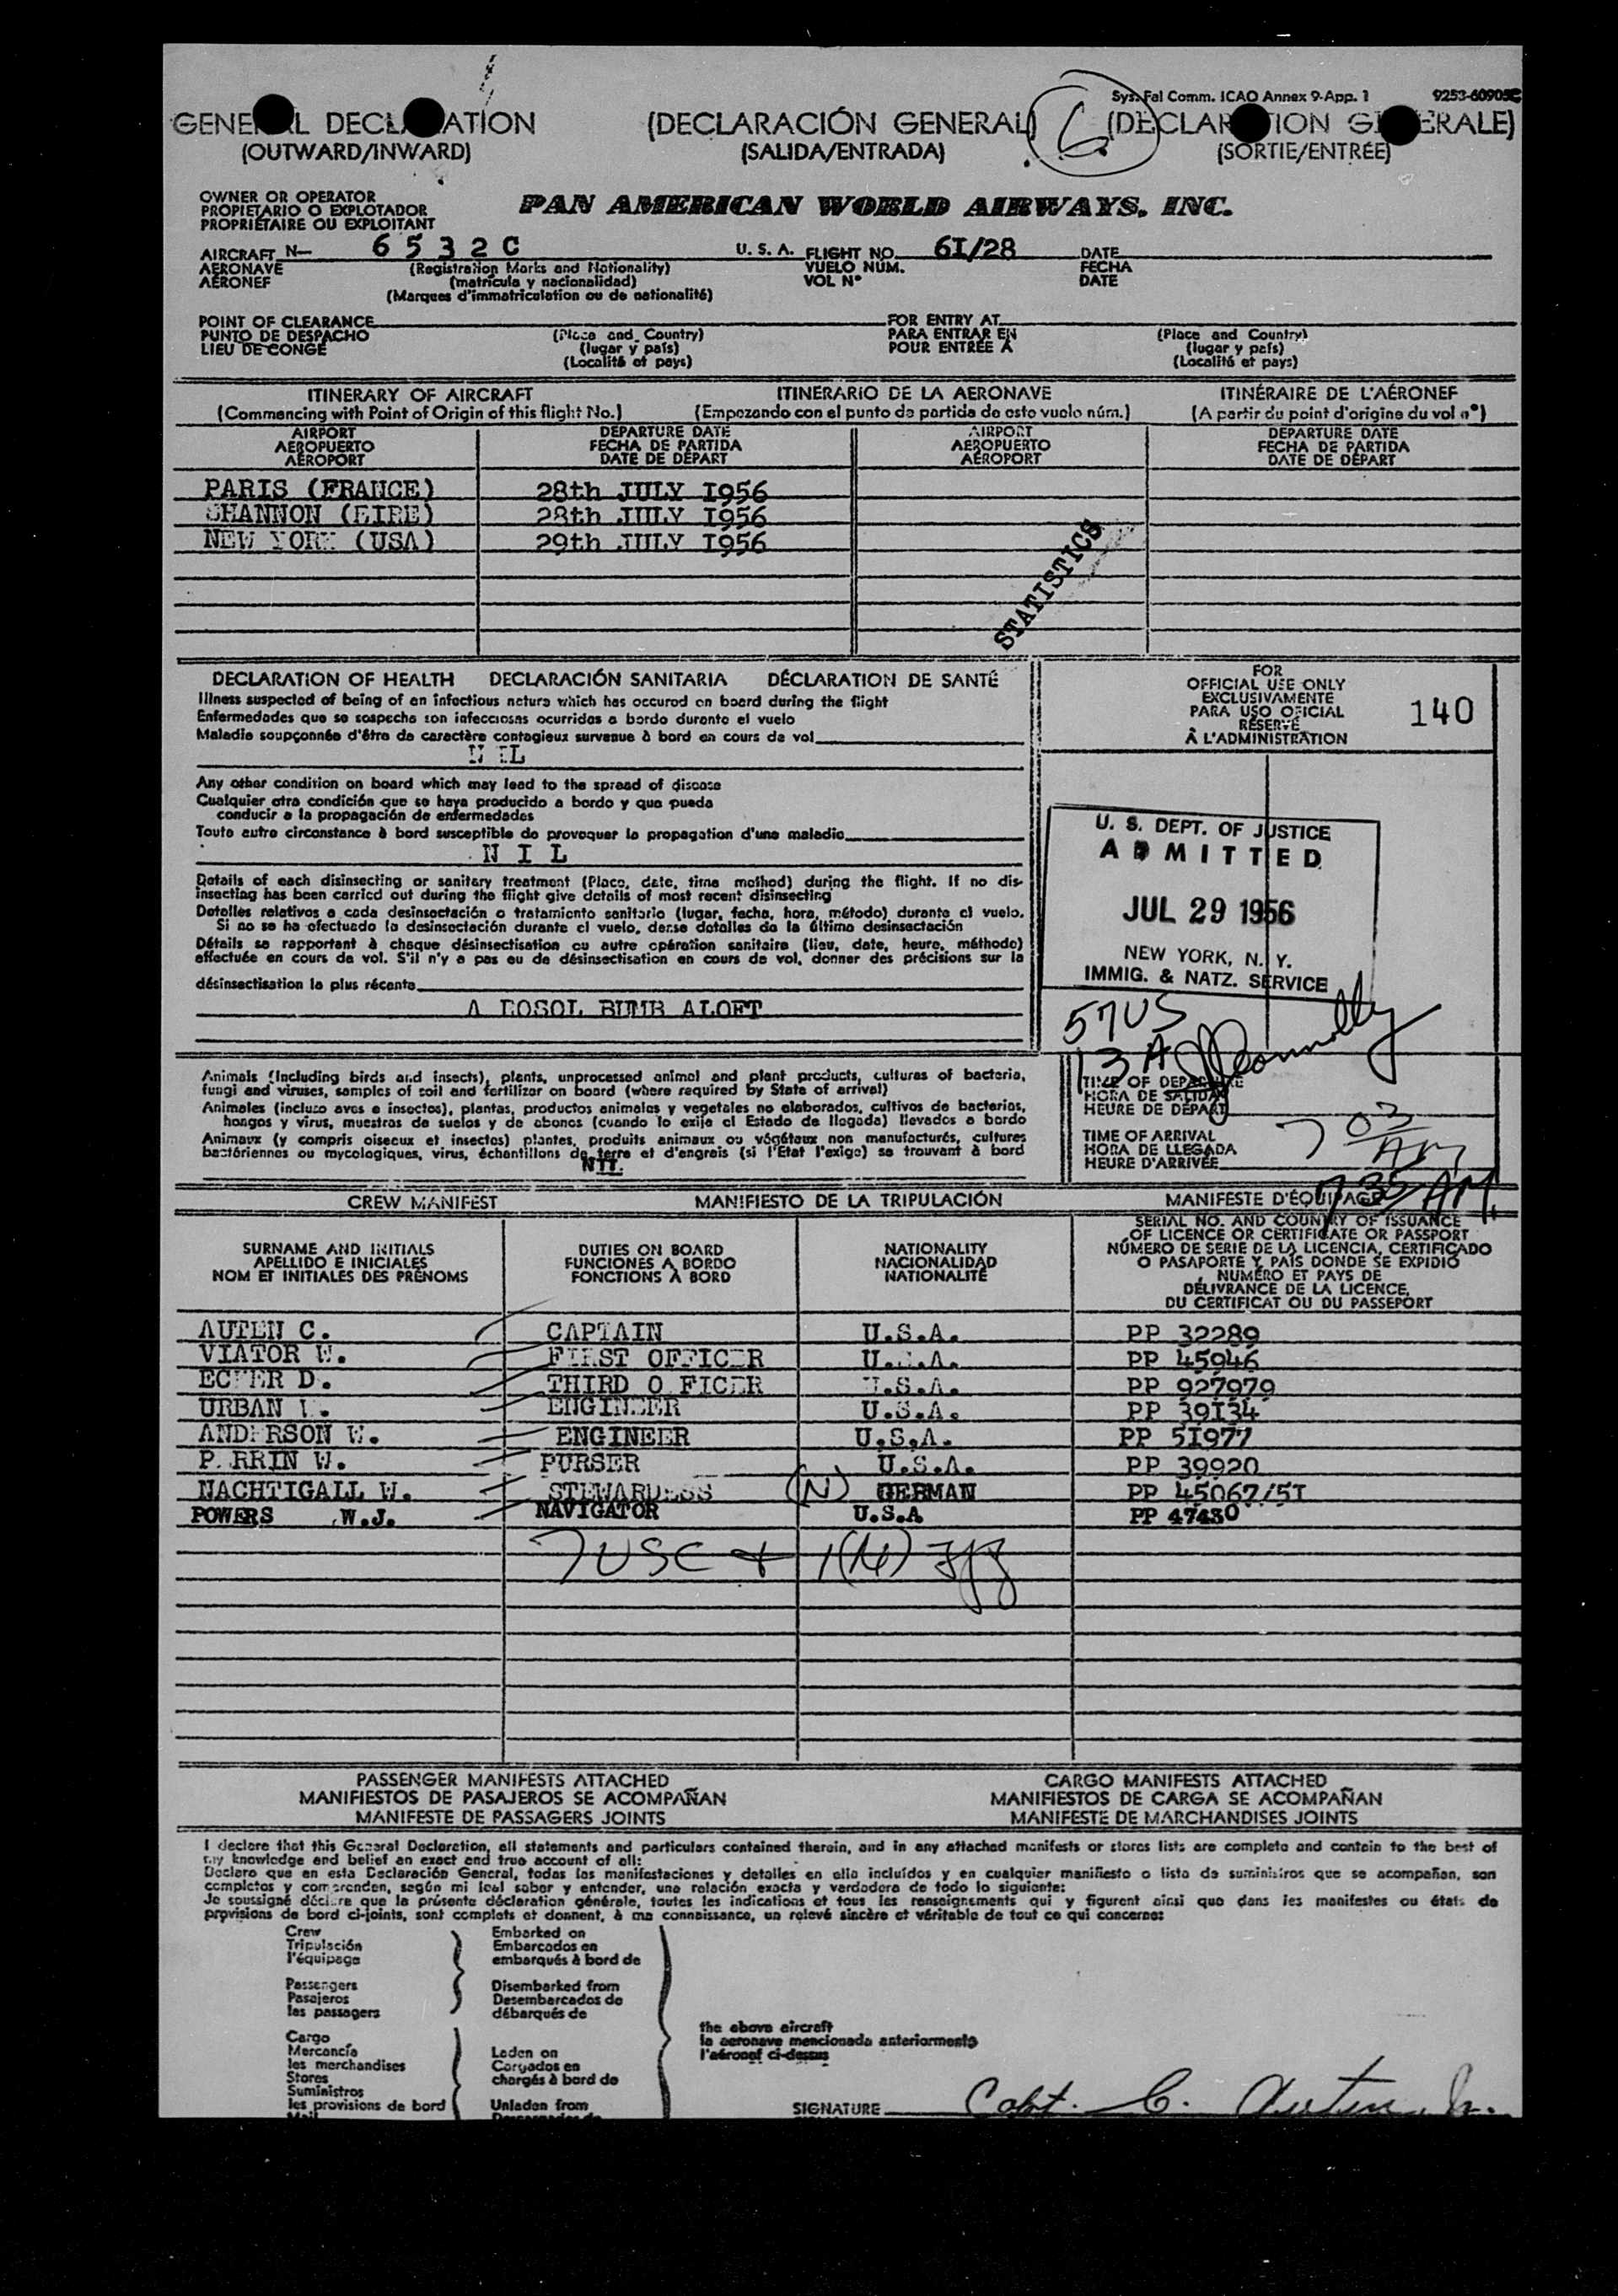 Sys. Fal Comm. ICAO Annex 9-App. 1 9253-60905C
GENERAL DECLARATION (DECLARACIÓN GENERAL) 6. (DECLARATION GENERALE)
(OUTWARD/INWARD) (SALIDA/ENTRADA) (SORTIE/ENTRÉE)
OWNER OR OPERATOR
PROPIETARIO O EXPLOTADOR
PROPRIÉTAIRE OU EXPLOITANT
PAN AMERICAN WORLD AIRWAYS, INC.
AIRCRAFT N— 6 5 3 2 C U. S. A. FLIGHT NO. 6I/28 DATE
AERONAVE (Registration Marks and Nationality) VUELO NÚM. FECHA
AÉRONEF (matrícula y nacionalidad) VOL N° DATE
(Marques d'immatriculation ou de nationalité)
POINT OF CLEARANCE FOR ENTRY AT
PUNTO DE DESPACHO (Place and Country) PARA ENTRAR EN (Place and Country)
LIEU DE CONGÉ (lugar y país) POUR ENTRÉE À (lugar y país)
(Localité et pays) (Localité et pays)
ITINERARY OF AIRCRAFT ITINERARIO DE LA AERONAVE ITINÉRAIRE DE L'AÉRONEF
(Commencing with Point of Origin of this flight No.) (Empezando con el punto de partida de este vuelo núm.) (A partir du point d'origine du vol n°)
AIRPORT DEPARTURE DATE AIRPORT DEPARTURE DATE
AEROPUERTO FECHA DE PARTIDA AEROPUERTO FECHA DE PARTIDA
AÉROPORT DATE DE DÉPART AÉROPORT DATE DE DÉPART
PARIS (FRANCE) 28th JULY I956
SHANNON (EIRE) 28th JULY I956
NEW YORK (USA) 29th JULY I956
STATISTICS
DECLARATION OF HEALTH DECLARACIÓN SANITARIA DÉCLARATION DE SANTÉ
Illness suspected of being of an infectious nature which has occured on board during the flight
Enfermedades que se sospecha son infecciosas ocurridas a bordo durante el vuelo
Maladie soupçonnée d'être de caractère contagieux survenue à bord en cours de vol
NIL
Any other condition on board which may lead to the spread of disease
Cualquier otra condición que se haya producido a bordo y que pueda
conducir a la propagación de enfermedades
Toute autre circonstance à bord susceptible de provoquer la propagation d'une maladie
N I L
Details of each disinsecting or sanitary treatment (Place, date, time method) during the flight. If no dis-
insecting has been carried out during the flight give details of most recent disinsecting
Detalles relativos a cada desinsectación o tratamiento sanitario (lugar, fecha, hora, método) durante el vuelo.
Si no se ha efectuado la desinsectación durante el vuelo, dense detalles de la última desinsectación
Détails se rapportant à chaque désinsectisation ou autre opération sanitaire (lieu, date, heure, méthode)
effectuée en cours de vol. S'il n'y a pas eu de désinsectisation en cours de vol, donner des précisions sur la
désinsectisation la plus récente
A EOSOL BUMB ALOFT
FOR
OFFICIAL USE ONLY
EXCLUSIVAMENTE
PARA USO OFICIAL
RÉSERVÉ
À L'ADMINISTRATION
140
U. S. DEPT. OF JUSTICE
ADMITTED
JUL 29 1956
NEW YORK, N. Y.
IMMIG. & NATZ. SERVICE
57US
13 A JJConnolly
Animals (Including birds and insects), plants, unprocessed animal and plant products, cultures of bacteria,
fungi and viruses, samples of soil and fertilizer on board (where required by State of arrival)
Animales (incluso aves e insectos), plantas, productos animales y vegetales no elaborados, cultivos de bacterias,
hongos y virus, muestras de suelos y de abonos (cuando lo exija el Estado de llegada) llevados a bordo
Animaux (y compris oiseaux et insectes) plantes, produits animaux ou végétaux non manufacturés, cultures
bactériennes ou mycologiques, virus, échantillons de terre et d'engrais (si l'État l'exige) se trouvant à bord
NIL
TIME OF DEPARTURE
HORA DE SALIDA
HEURE DE DÉPART
TIME OF ARRIVAL 7 03 AM
HORA DE LLEGADA
HEURE D'ARRIVÉE
7 35 AM
CREW MANIFEST MANIFIESTO DE LA TRIPULACIÓN MANIFESTE D'ÉQUIPAGE
SURNAME AND INITIALS
APELLIDO E INICIALES
NOM ET INITIALES DES PRÉNOMS
DUTIES ON BOARD
FUNCIONES A BORDO
FONCTIONS À BORD
NATIONALITY
NACIONALIDAD
NATIONALITÉ
SERIAL NO. AND COUNTRY OF ISSUANCE
OF LICENCE OR CERTIFICATE OR PASSPORT
NÚMERO DE SERIE DE LA LICENCIA, CERTIFICADO
O PASAPORTE Y PAÍS DONDE SE EXPIDIÓ
NUMÉRO ET PAYS DE
DÉLIVRANCE DE LA LICENCE,
DU CERTIFICAT OU DU PASSEPORT
AUTEN C. CAPTAIN U.S.A. PP 32289
VIATOR W. FIRST OFFICER U.S.A. PP 45946
ECKER D. THIRD OFFICER U.S.A. PP 927979
URBAN ENGINEER U.S.A. PP 39I34
ANDERSON W. ENGINEER U.S.A. PP 5I977
PERRIN W. PURSER U.S.A. PP 39920
NACHTIGALL W. STEWARDESS (N) GERMAN PP 45067/5I
POWERS W.J. NAVIGATOR U.S.A PP 47430
7 USC + 1(N)
PASSENGER MANIFESTS ATTACHED CARGO MANIFESTS ATTACHED
MANIFIESTOS DE PASAJEROS SE ACOMPAÑAN MANIFIESTOS DE CARGA SE ACOMPAÑAN
MANIFESTE DE PASSAGERS JOINTS MANIFESTE DE MARCHANDISES JOINTS
I declare that this General Declaration, all statements and particulars contained therein, and in any attached manifests or stores lists are complete and contain to the best of
my knowledge and belief an exact and true account of all:
Declaro que en esta Declaración General, todas las manifestaciones y detalles en ella incluídos y en cualquier manifiesto o lista de suministros que se acompañan, son
completos y comprenden, según mi leal saber y entender, una relación exacta y verdadera de todo lo siguiente:
Je soussigné déclare que la présente déclaration générale, toutes les indications et tous les renseignements qui y figurent ainsi que dans les manifestes ou états de
provisions de bord ci-joints, sont complets et donnent, à ma connaissance, un relevé sincère et véritable de tout ce qui concerne:
Crew Embarked on
Tripulación Embarcados en
l'équipage embarqués à bord de
Passengers Disembarked from
Pasajeros Desembarcados de
les passagers débarqués de
the above aircraft
la aeronave mencionada anteriormente
l'aéronef ci-dessus
Cargo
Mercancía Laden on
les merchandises Cargados en
Stores chargés à bord de
Suministros
les provisions de bord Unladen from
Mail
SIGNATURE Capt. C. Auten Jr.